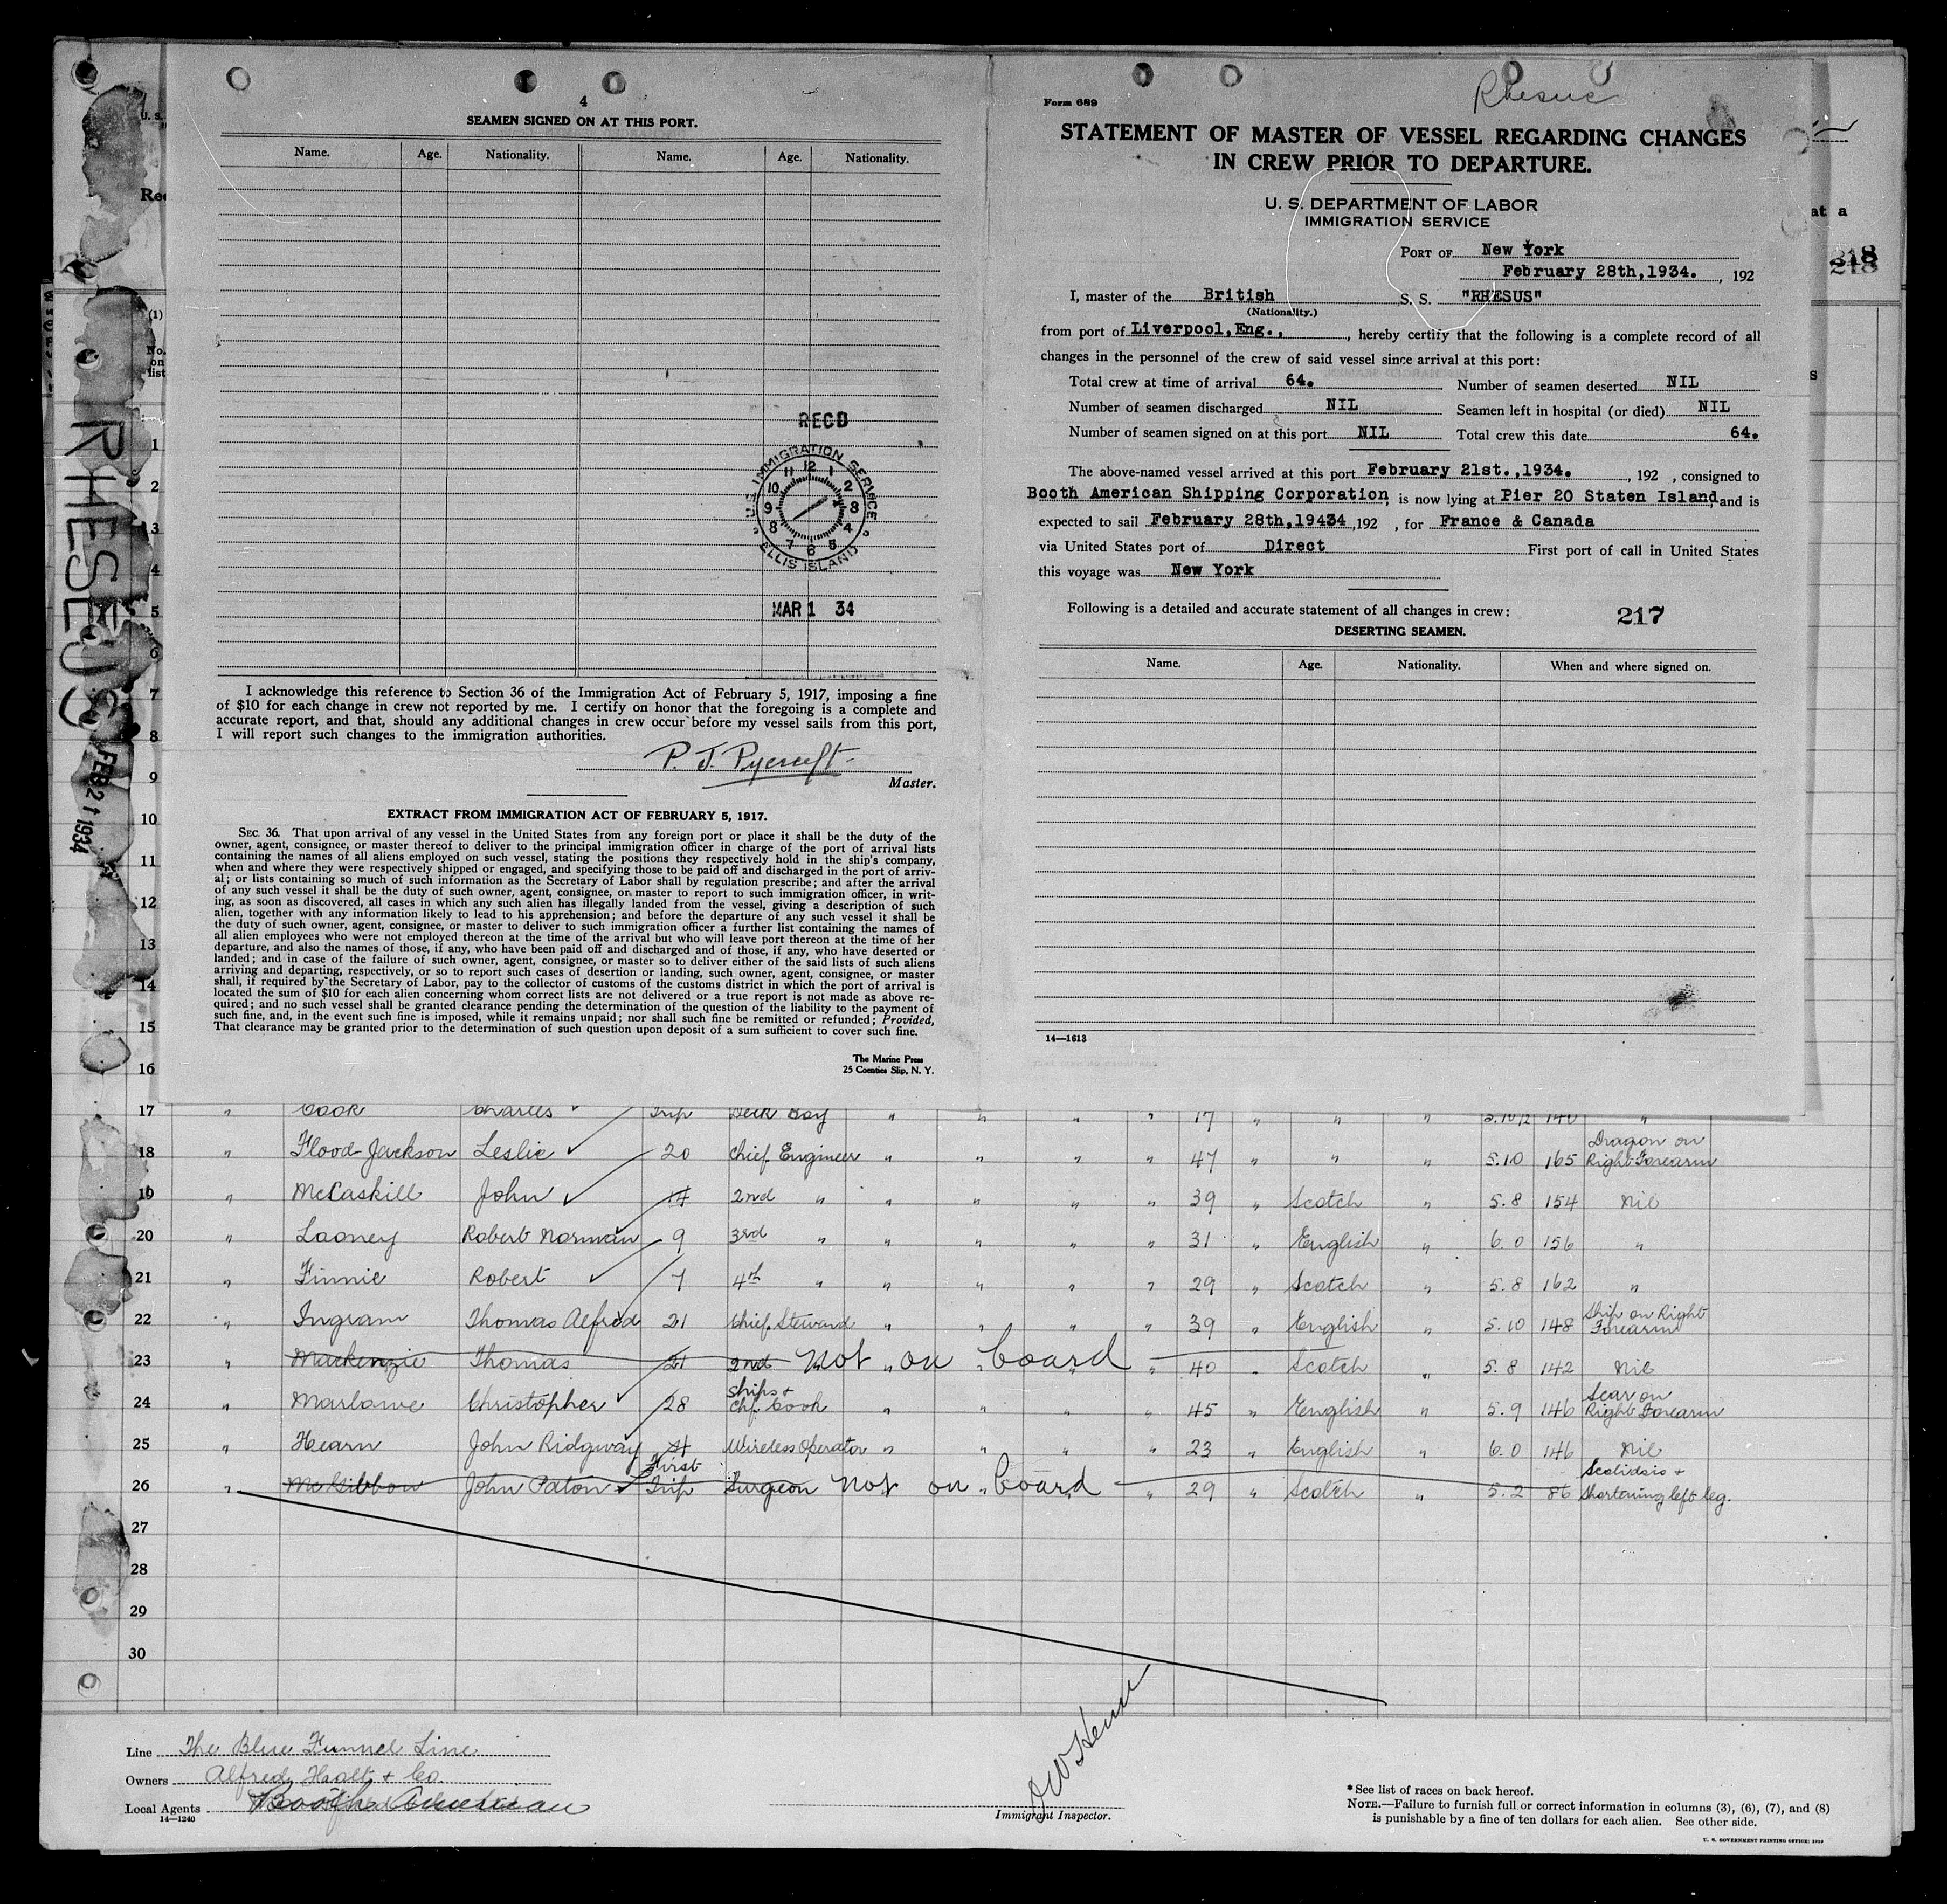 4
SEAMEN SIGNED ON AT THIS PORT.
Name. Age. Nationality. Name. Age. Nationality.
RECD
U.S. IMMIGRATION SERVICE
ELLIS ISLAND
12 1 2 3 4 5 6 7 8 9 10 11
MAR 1 34
I acknowledge this reference to Section 36 of the Immigration Act of February 5, 1917, imposing a fine
of $10 for each change in crew not reported by me. I certify on honor that the foregoing is a complete and
accurate report, and that, should any additional changes in crew occur before my vessel sails from this port,
I will report such changes to the immigration authorities.
P. J. Pycroft
Master.
EXTRACT FROM IMMIGRATION ACT OF FEBRUARY 5, 1917.
SEC. 36. That upon arrival of any vessel in the United States from any foreign port or place it shall be the duty of the
owner, agent, consignee, or master thereof to deliver to the principal immigration officer in charge of the port of arrival lists
containing the names of all aliens employed on such vessel, stating the positions they respectively hold in the ship's company,
when and where they were respectively shipped or engaged, and specifying those to be paid off and discharged in the port of arriv-
al; or lists containing so much of such information as the Secretary of Labor shall by regulation prescribe; and after the arrival
of any such vessel it shall be the duty of such owner, agent, consignee, or master to report to such immigration officer, in writ-
ing, as soon as discovered, all cases in which any such alien has illegally landed from the vessel, giving a description of such
alien, together with any information likely to lead to his apprehension; and before the departure of any such vessel it shall be
the duty of such owner, agent, consignee, or master to deliver to such immigration officer a further list containing the names of
all alien employees who were not employed thereon at the time of the arrival but who will leave port thereon at the time of her
departure, and also the names of those, if any, who have been paid off and discharged and of those, if any, who have deserted or
landed; and in case of the failure of such owner, agent, consignee, or master so to deliver either of the said lists of such aliens
arriving and departing, respectively, or so to report such cases of desertion or landing, such owner, agent, consignee, or master
shall, if required by the Secretary of Labor, pay to the collector of customs of the customs district in which the port of arrival is
located the sum of $10 for each alien concerning whom correct lists are not delivered or a true report is not made as above re-
quired; and no such vessel shall be granted clearance pending the determination of the question of the liability to the payment of
such fine, and, in the event such fine is imposed, while it remains unpaid; nor shall such fine be remitted or refunded; Provided,
That clearance may be granted prior to the determination of such question upon deposit of a sum sufficient to cover such fine.
The Marine Press
25 Coenties Slip, N. Y.
Rhesus
Form 689
STATEMENT OF MASTER OF VESSEL REGARDING CHANGES
IN CREW PRIOR TO DEPARTURE.
U. S. DEPARTMENT OF LABOR
IMMIGRATION SERVICE
PORT OF New York
February 28th,1934. , 192
I, master of the British S. S. "RHESUS"
(Nationality.)
from port of Liverpool,Eng., , hereby certify that the following is a complete record of all
changes in the personnel of the crew of said vessel since arrival at this port:
Total crew at time of arrival 64. Number of seamen deserted NIL
Number of seamen discharged NIL Seamen left in hospital (or died) NIL
Number of seamen signed on at this port NIL Total crew this date 64.
The above-named vessel arrived at this port February 21st.,1934. , 192 , consigned to
Booth American Shipping Corporation, is now lying at Pier 20 Staten Island, and is
expected to sail February 28th,19434 ,192 , for France & Canada
via United States port of Direct First port of call in United States
this voyage was New York
Following is a detailed and accurate statement of all changes in crew: 217
DESERTING SEAMEN.
Name. Age. Nationality. When and where signed on.
14—1613
at a
218
s
U. S.
(1)
No.
on
list
RHESEUS
FEB 21 1934
1
2
3
4
5
6
7
8
9
10
11
12
13
14
15
16
17 " Cook Charles Trip Deck Boy " " " " 17 " " " 5.10½ 140 "
18 " Flood-Jackson Leslie 20 Chief Engineer " " " " 47 " " " 5.10 165 Dragon on Right Forearm
19 " McCaskill John 14 2nd " " " " " 39 " Scotch " 5.8 154 Nil
20 " Looney Robert Norman 9 3rd " " " " " 31 " English " 6.0 156 "
21 " Finnie Robert 7 4th " " " " " 29 " Scotch " 5.8 162 "
22 " Ingram Thomas Alfred 21 Chief Steward " " " " 39 " English " 5.10 148 Ship on Right Forearm
23 " Mackenzie Thomas 21 2nd " not on board " 40 " Scotch " 5.8 142 Nil
24 " Marlowe Christopher 28 Ships + Chf. Cook " " " " 45 " English " 5.9 146 Scar on Right Forearm
25 " Hearn John Ridgway Wireless Operator " " " " 23 " English " 6.0 146 Nil
26 " McGibbon John Paton First Trip Surgeon not on board " 29 " Scotch " 5.2 86 Scoliosis + Shortening left leg.
27
28
29
30
Line The Blue Funnel Line
Owners Alfred Holt & Co.
Local Agents Booth American
14—1240
Immigrant Inspector.
* See list of races on back hereof.
NOTE.—Failure to furnish full or correct information in columns (3), (6), (7), and (8)
is punishable by a fine of ten dollars for each alien. See other side.
U. S. GOVERNMENT PRINTING OFFICE: 1929